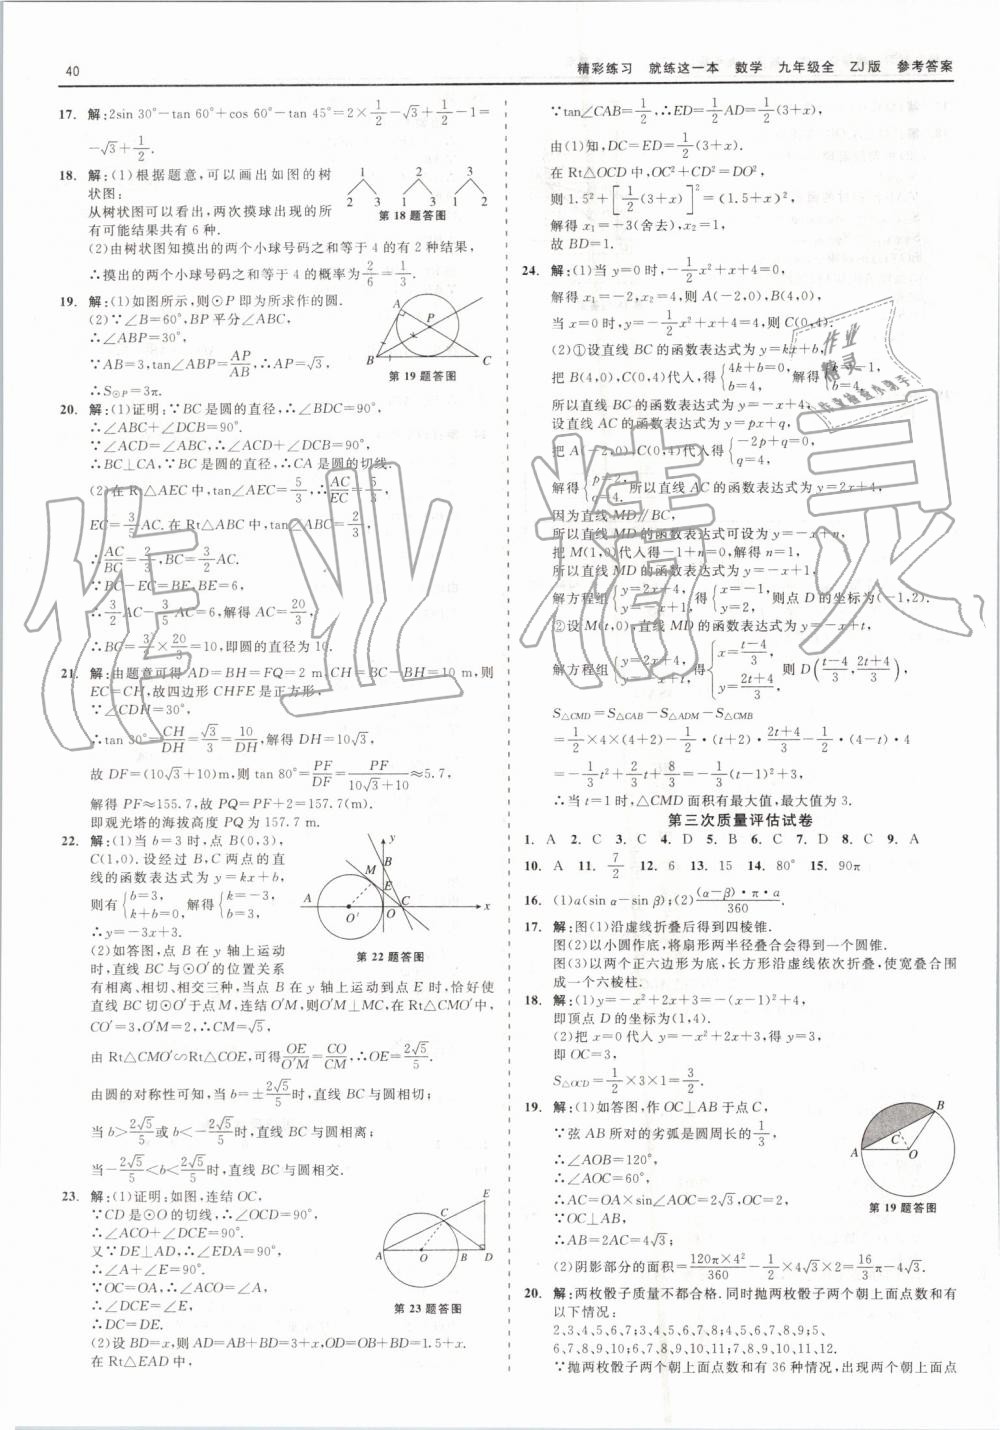 40
精彩练习 就练这一本 数学 九年级全 ZJ版 参考答案
17. 解:2sin 30°−tan 60°+cos 60°−tan 45°=2×1/2−√3+1/2−1=
−√3+1/2.
18. 解:(1)根据题意,可以画出如图的树
状图:
从树状图可以看出,两次摸球出现的所
有可能结果共有6种.
1 2 3
2 3 1 3 1 2
第18题答图
(2)由树状图知摸出的两个小球号码之和等于4的有2种结果,
∴摸出的两个小球号码之和等于4的概率为2/6=1/3.
19. 解:(1)如图所示,则⊙P即为所求作的圆.
(2)∵∠B=60°,BP平分∠ABC,
∴∠ABP=30°,
∵AB=3,tan∠ABP=AP/AB,∴AP=√3,
∴S⊙P=3π.
A P B C
第19题答图
20. 解:(1)证明:∵BC是圆的直径,∴∠BDC=90°,
∴∠ABC+∠DCB=90°.
∵∠ACD=∠ABC,∴∠ACD+∠DCB=90°,
∴BC⊥CA,∵BC是圆的直径,∴CA是圆的切线.
(2)在Rt△AEC中,tan∠AEC=5/3,∴AC/EC=5/3,
EC=3/5AC.在Rt△ABC中,tan∠ABC=2/3,
∴AC/BC=2/3,BC=3/2AC.
∵BC−EC=BE,BE=6,
∴3/2AC−3/5AC=6,解得AC=20/3,
∴BC=3/2×20/3=10,即圆的直径为10.
21. 解:由题意可得AD=BH=FQ=2 m,CH=BC−BH=10 m,则
EC=CH,故四边形CHFE是正方形.
∵∠CDH=30°,
∴tan 30°=CH/DH=√3/3=10/DH,解得DH=10√3,
故DF=(10√3+10)m,则tan 80°=PF/DF=PF/(10√3+10)≈5.7,
解得PF≈155.7,故PQ=PF+2=157.7(m).
即观光塔的海拔高度PQ为157.7 m.
22. 解:(1)当b=3时,点B(0,3),
C(1,0).设经过B,C两点的直
线的函数表达式为y=kx+b,
则有{b=3, k+b=0, 解得{k=−3, b=3,
∴y=−3x+3.
(2)如答图,点B在y轴上运动
时,直线BC与⊙O′的位置关系
y B M E A O′ O C x
第22题答图
有相离、相切、相交三种,当点B在y轴上运动到点E时,恰好使
直线BC切⊙O′于点M,连结O′M,则O′M⊥MC,在Rt△CMO′中,
CO′=3,O′M=2,∴CM=√5,
由Rt△CMO′∽Rt△COE,可得OE/O′M=CO/CM,∴OE=2√5/5.
由圆的对称性可知,当b=±2√5/5时,直线BC与圆相切;
当b>2√5/5或b<−2√5/5时,直线BC与圆相离;
当−2√5/5<b<2√5/5时,直线BC与圆相交.
23. 解:(1)证明:如图,连结OC,
∵CD是⊙O的切线,∴∠OCD=90°.
∴∠ACO+∠DCE=90°.
又∵DE⊥AD,∴∠EDA=90°,
∴∠A+∠E=90°.
∵OC=OA,∴∠ACO=∠A,
∴∠DCE=∠E,
∴DC=DE.
E C A O B D
第23题答图
(2)设BD=x,则AD=AB+BD=3+x,OD=OB+BD=1.5+x.
在Rt△EAD中,
∵tan∠CAB=1/2,∴ED=1/2AD=1/2(3+x),
由(1)知,DC=ED=1/2(3+x).
在Rt△OCD中,OC²+CD²=DO²,
则1.5²+[1/2(3+x)]²=(1.5+x)²,
解得x₁=−3(舍去),x₂=1,
故BD=1.
24. 解:(1)当y=0时,−1/2x²+x+4=0,
解得x₁=−2,x₂=4,则A(−2,0),B(4,0),
当x=0时,y=−1/2x²+x+4=4,则C(0,4).
(2)①设直线BC的函数表达式为y=kx+b,
把B(4,0),C(0,4)代入,得{4k+b=0, b=4, 解得{k=−1, b=4,
所以直线BC的函数表达式为y=−x+4,
设直线AC的函数表达式为y=px+q,
把A(−2,0),C(0,4)代入,得{−2p+q=0, q=4,
解得{p=2, q=4. 所以直线AC的函数表达式为y=2x+4,
因为直线MD∥BC,
所以直线MD的函数表达式可设为y=−x+n,
把M(1,0)代入得−1+n=0,解得n=1,
所以直线MD的函数表达式为y=−x+1,
解方程组{y=2x+4, y=−x+1, 得{x=−1, y=2, 则点D的坐标为(−1,2).
②设M(t,0),直线MD的函数表达式为y=−x+t,
解方程组{y=2x+4, y=−x+t, 得{x=(t−4)/3, y=(2t+4)/3, 则D((t−4)/3,(2t+4)/3),
S△CMD=S△CAB−S△ADM−S△CMB
=1/2×4×(4+2)−1/2·(t+2)·(2t+4)/3−1/2·(4−t)·4
=−1/3t²+2/3t+8/3=−1/3(t−1)²+3,
∴当t=1时,△CMD面积有最大值,最大值为3.
第三次质量评估试卷
1. A 2. C 3. C 4. D 5. B 6. C 7. D 8. C 9. A
10. A 11. 7/2 12. 6 13. 15 14. 80° 15. 90π
16. (1)a(sin α−sin β);(2)(α−β)·π·a/360
17. 解:图(1)沿虚线折叠后得到四棱锥.
图(2)以小圆作底,将扇形两半径叠合会得到一个圆锥.
图(3)以两个正六边形为底,长方形沿虚线依次折叠,使宽叠合围
成一个六棱柱.
18. 解:(1)y=−x²+2x+3=−(x−1)²+4,
即顶点D的坐标为(1,4).
(2)把x=0代入y=−x²+2x+3,得y=3,
即OC=3,
S△OCD=1/2×3×1=3/2.
19. 解:(1)如答图,作OC⊥AB于点C,
∵弦AB所对的劣弧是圆周长的1/3,
∴∠AOB=120°,
∴∠AOC=60°,
∴AC=OA×sin∠AOC=2√3,OC=2,
∵OC⊥AB,
∴AB=2AC=4√3;
B A C O
第19题答图
(2)阴影部分的面积=120π×4²/360−1/2×4√3×2=16/3π−4√3.
20. 解:两枚骰子质量不都合格.同时抛两枚骰子两个朝上面点数和有
以下情况:
2,3,4,5,6,7;3,4,5,6,7,8;4,5,6,7,8,9;5,
6,7,8,9,10;6,7,8,9,10,11;7,8,9,10,11,12.
∵抛两枚骰子两个朝上面点数和有36种情况,出现两个朝上面点
作业精灵
作业
精灵